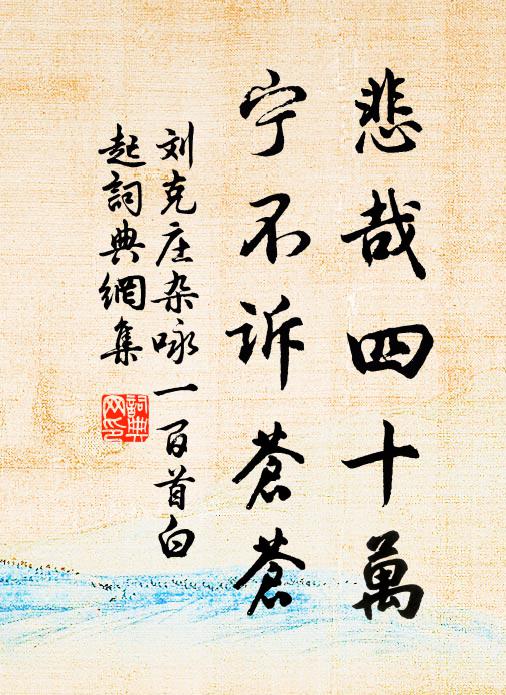 悲哉四十萬
宁不诉蒼蒼
刘克庄杂咏一百首白
起詞典網集
詞典
网印